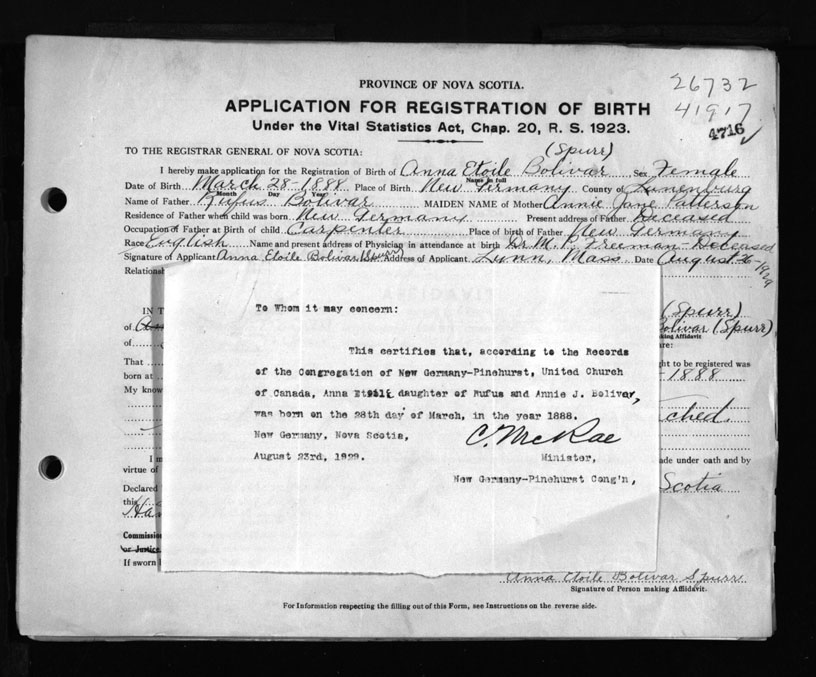 PROVINCE OF NOVA SCOTIA.
26732
APPLICATION FOR REGISTRATION OF BIRTH
41917
4716
Under the Vital Statistics Act, Chap. 20, R. S. 1923.
(Spurr)
TO THE REGISTRAR GENERAL OF NOVA SCOTIA:
I hereby make application for the Registration of Birth of Anna Etoile Bolivar Sex Female
Name in full
Date of Birth March 28 - 1888 Place of Birth New Germany County of Lunenburg
Month Day Year
Name of Father Rufus Bolivar MAIDEN NAME of Mother Annie Jane Patterson
Residence of Father when child was born New Germany Present address of Father Deceased
Occupation of Father at Birth of child Carpenter Place of birth of Father New Germany
Race English Name and present address of Physician in attendance at birth Dr. M. P. Freeman - Deceased
Signature of Applicant Anna Etoile Bolivar (Spurr) Address of Applicant Lynn, Mass Date August 1929
Relations
To Whom it may concern:
IN T
(Spurr)
of
Bolivar (Spurr)
making Affidavit
of
re:
This certifies that, according to the Records
That
ght to be registered was
of the Congregation of New Germany-Pinehurst, United Church
born at
- 1888
of Canada, Anna Etoile daughter of Rufus and Annie J. Bolivar,
My know
was born on the 28th day of March, in the year 1888.
ched.
New Germany, Nova Scotia,
C. McRae
August 23rd, 1929.
Minister,
I m
ade under oath and by
virtue of
New Germany-Pinehurst Cong'n,
Declared
Scotia
this
Ha
Commission
or Justice
If sworn
Anna Etoile Bolivar Spurr
Signature of Person making Affidavit.
For Information respecting the filling out of this Form, see Instructions on the reverse side.